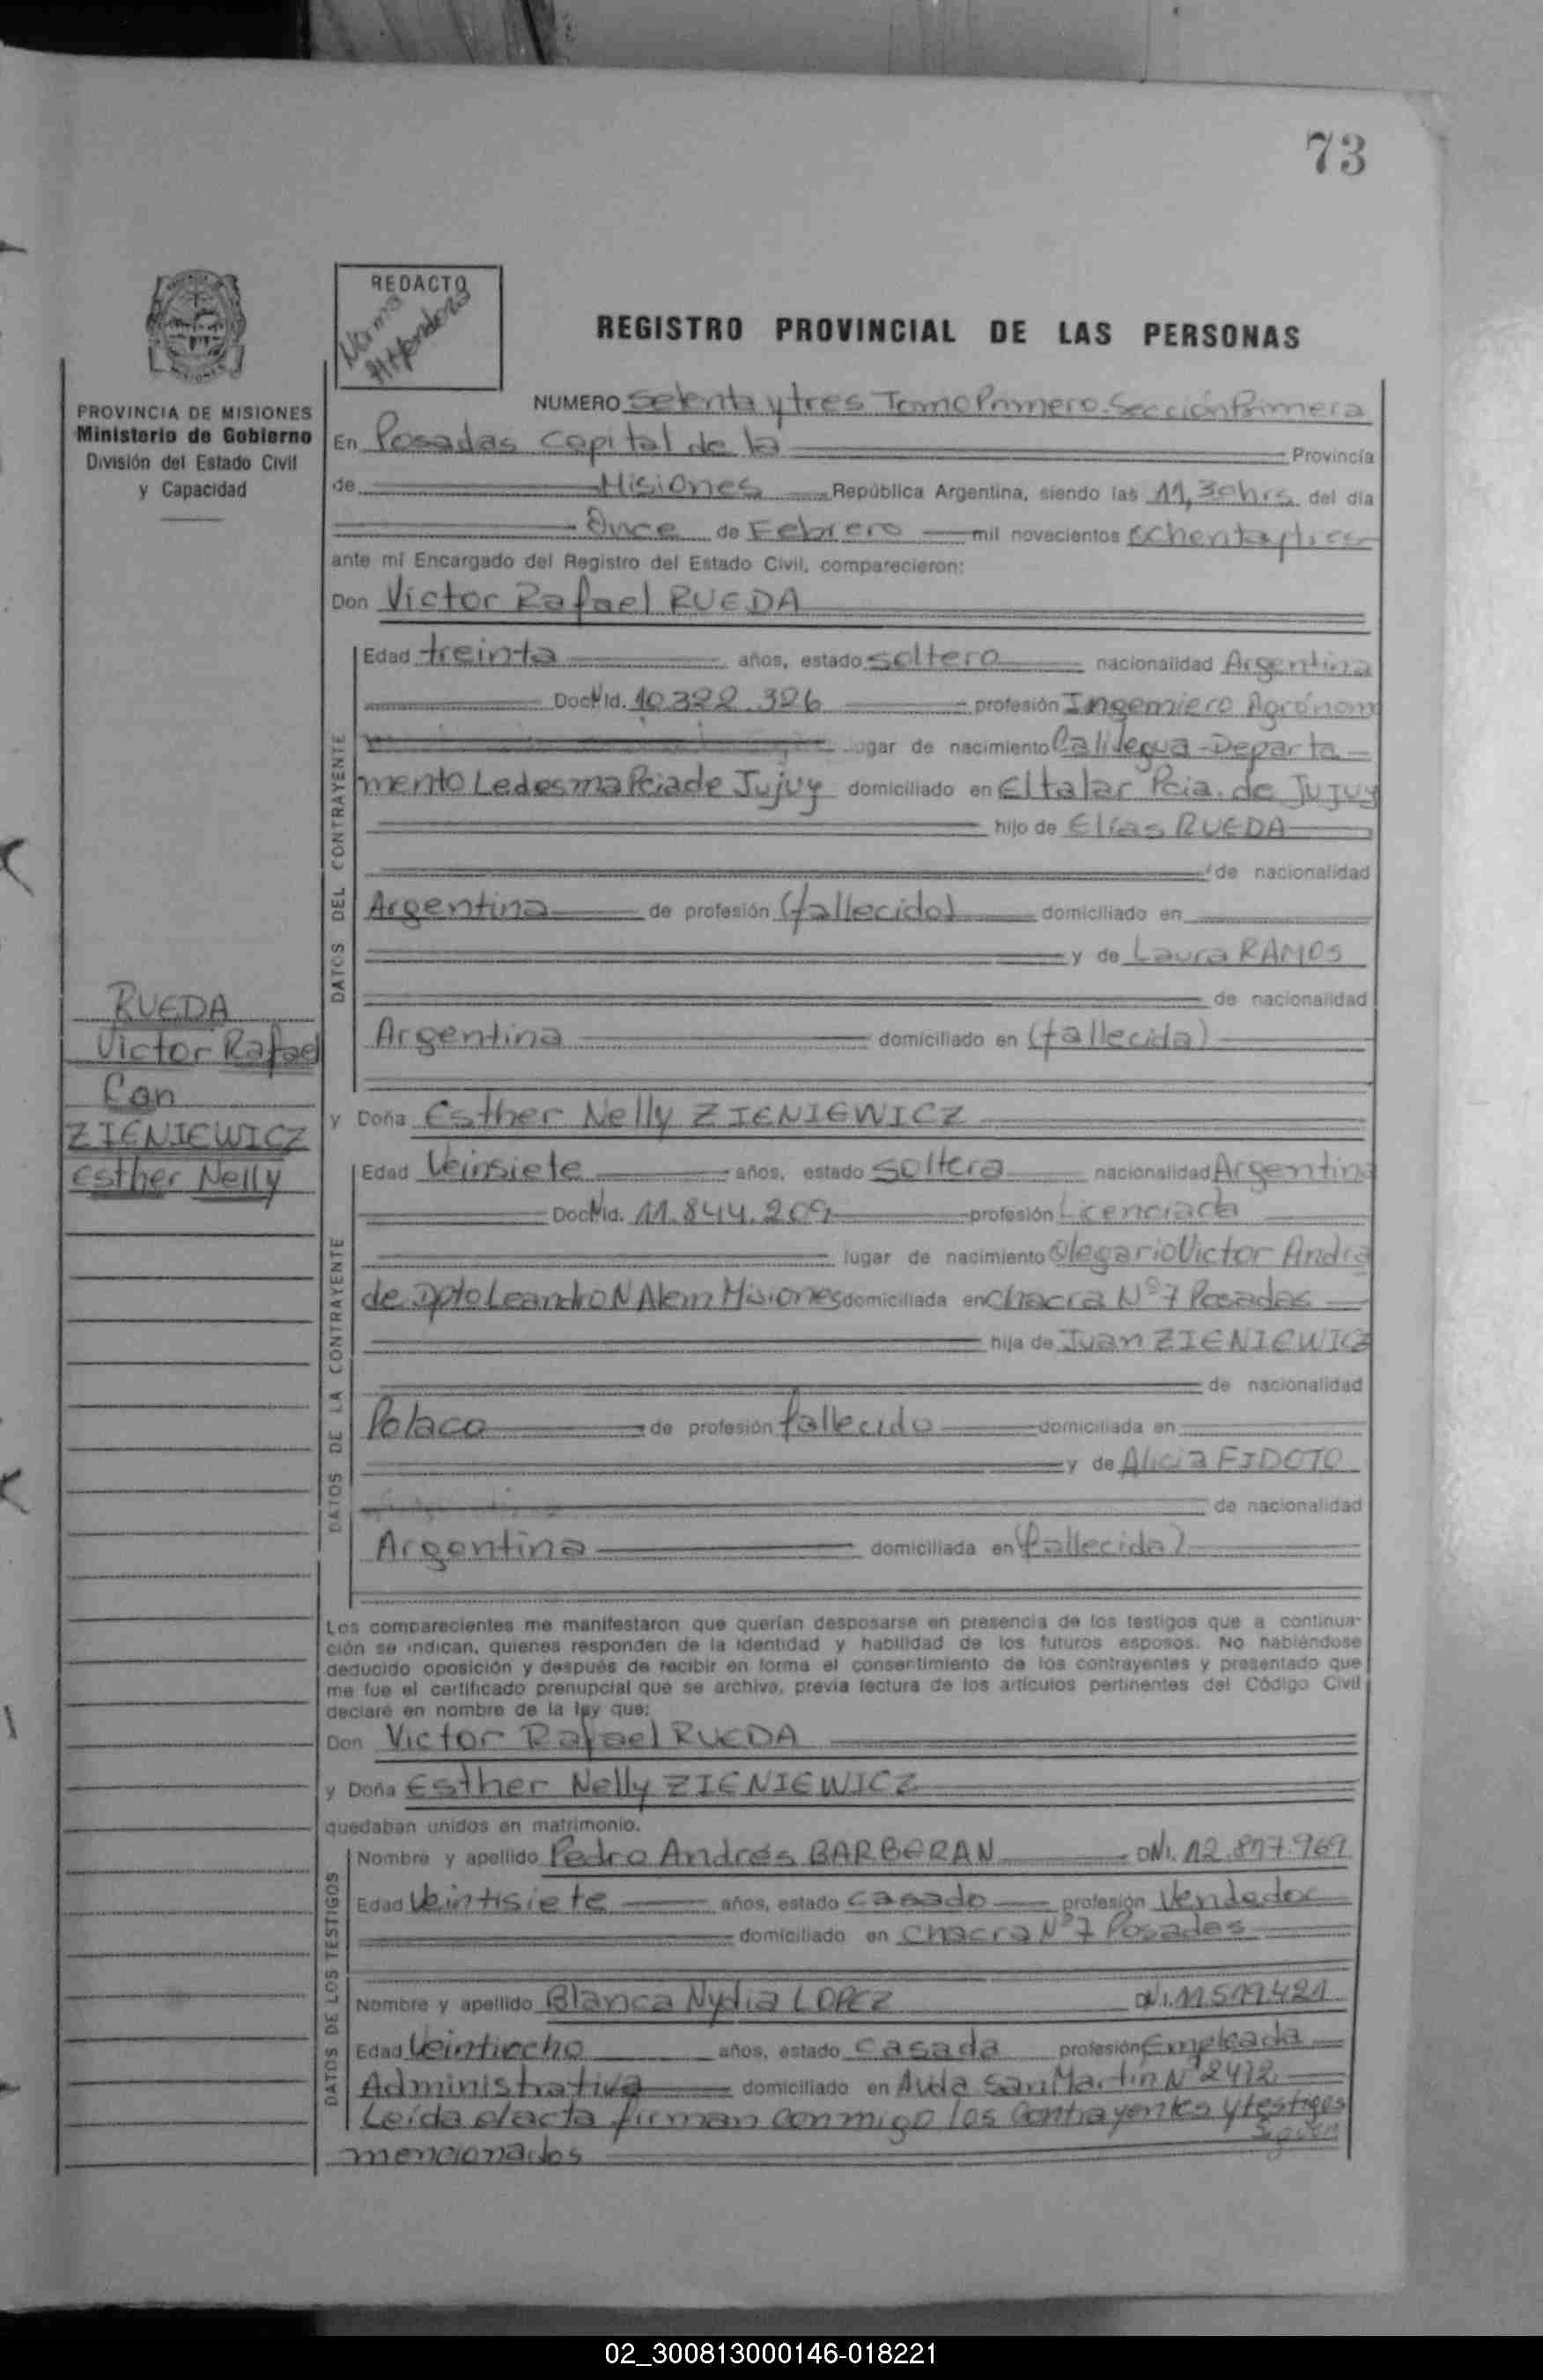 73
REDACTO
Norma
REGISTRO PROVINCIAL DE LAS PERSONAS
PROVINCIA DE MISIONES
Ministerio de Gobierno
División del Estado Civil
y Capacidad
NUMERO Setenta y tres Tomo Primero. Sección Primera
En Posadas capital de la Provincia
de Misiones República Argentina, siendo las 11,30hrs del día
Once de Febrero mil novecientos ochenta y tres
ante mí Encargado del Registro del Estado Civil, comparecieron:
Don Victor Rafael RUEDA
DATOS DEL CONTRAYENTE
Edad treinta años, estado soltero nacionalidad Argentina
Doc Nº Id. 10.322.326 profesión Ingeniero Agrónom
lugar de nacimiento Calilegua - Departa
mento Ledesma Pcia de Jujuy domiciliado en El talar Pcia. de Jujuy
hijo de Elías RUEDA
de nacionalidad
Argentina de profesión (fallecido) domiciliado en
y de Laura RAMOS
de nacionalidad
Argentina domiciliado en (fallecida)
RUEDA
Victor Rafael
Con
ZIENIEWICZ
Esther Nelly
y Doña Esther Nelly ZIENIEWICZ
DATOS DE LA CONTRAYENTE
Edad Veinsiete años, estado soltera nacionalidad Argentina
Doc Nº Id. 11.844.209 profesión Licenciada
lugar de nacimiento Olegario Victor Andra
de Dpto Leandro N Alem Misiones domiciliada en chacra Nº 7 Posadas
hija de Juan ZIENIEWICZ
de nacionalidad
Polaco de profesión fallecido domiciliada en
y de Alicia FIDOTO
de nacionalidad
Argentina domiciliada en (fallecida)
Los comparecientes me manifestaron que querían desposarse en presencia de los testigos que a continua-
ción se indican, quienes responden de la identidad y habilidad de los futuros esposos. No habiéndose
deducido oposición y después de recibir en forma el consentimiento de los contrayentes y presentado que
me fue el certificado prenupcial que se archiva, previa lectura de los artículos pertinentes del Código Civil
declaré en nombre de la ley que:
Don Victor Rafael RUEDA
y Doña Esther Nelly ZIENIEWICZ
quedaban unidos en matrimonio.
DATOS DE LOS TESTIGOS
Nombre y apellido Pedro Andrés BARBERAN DNI. 12.877.969
Edad Veintisiete años, estado casado profesión Vendedor
domiciliado en chacra Nº 7 Posadas
Nombre y apellido Blanca Nydia LOPEZ DNI. 11519421
Edad Veintiocho años, estado casada profesión Empleada
Administrativa domiciliado en Avda San Martin Nº 2412
Leída el acta firman conmigo los contrayentes y testigos
mencionados
02_300813000146-018221